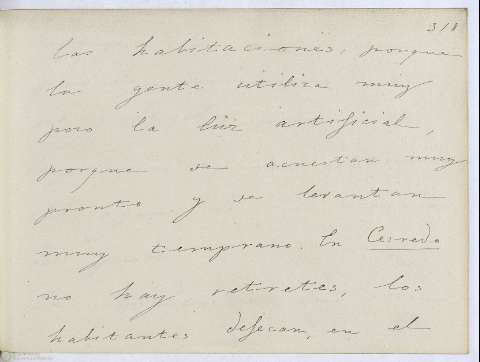 318
las habitaciones, porque
la gente utiliza muy
poco la luz artificial,
porque se acuestan muy
pronto y se levantan
muy temprano. En Cerredo
no hay retretes, los
habitantes defecan, en el